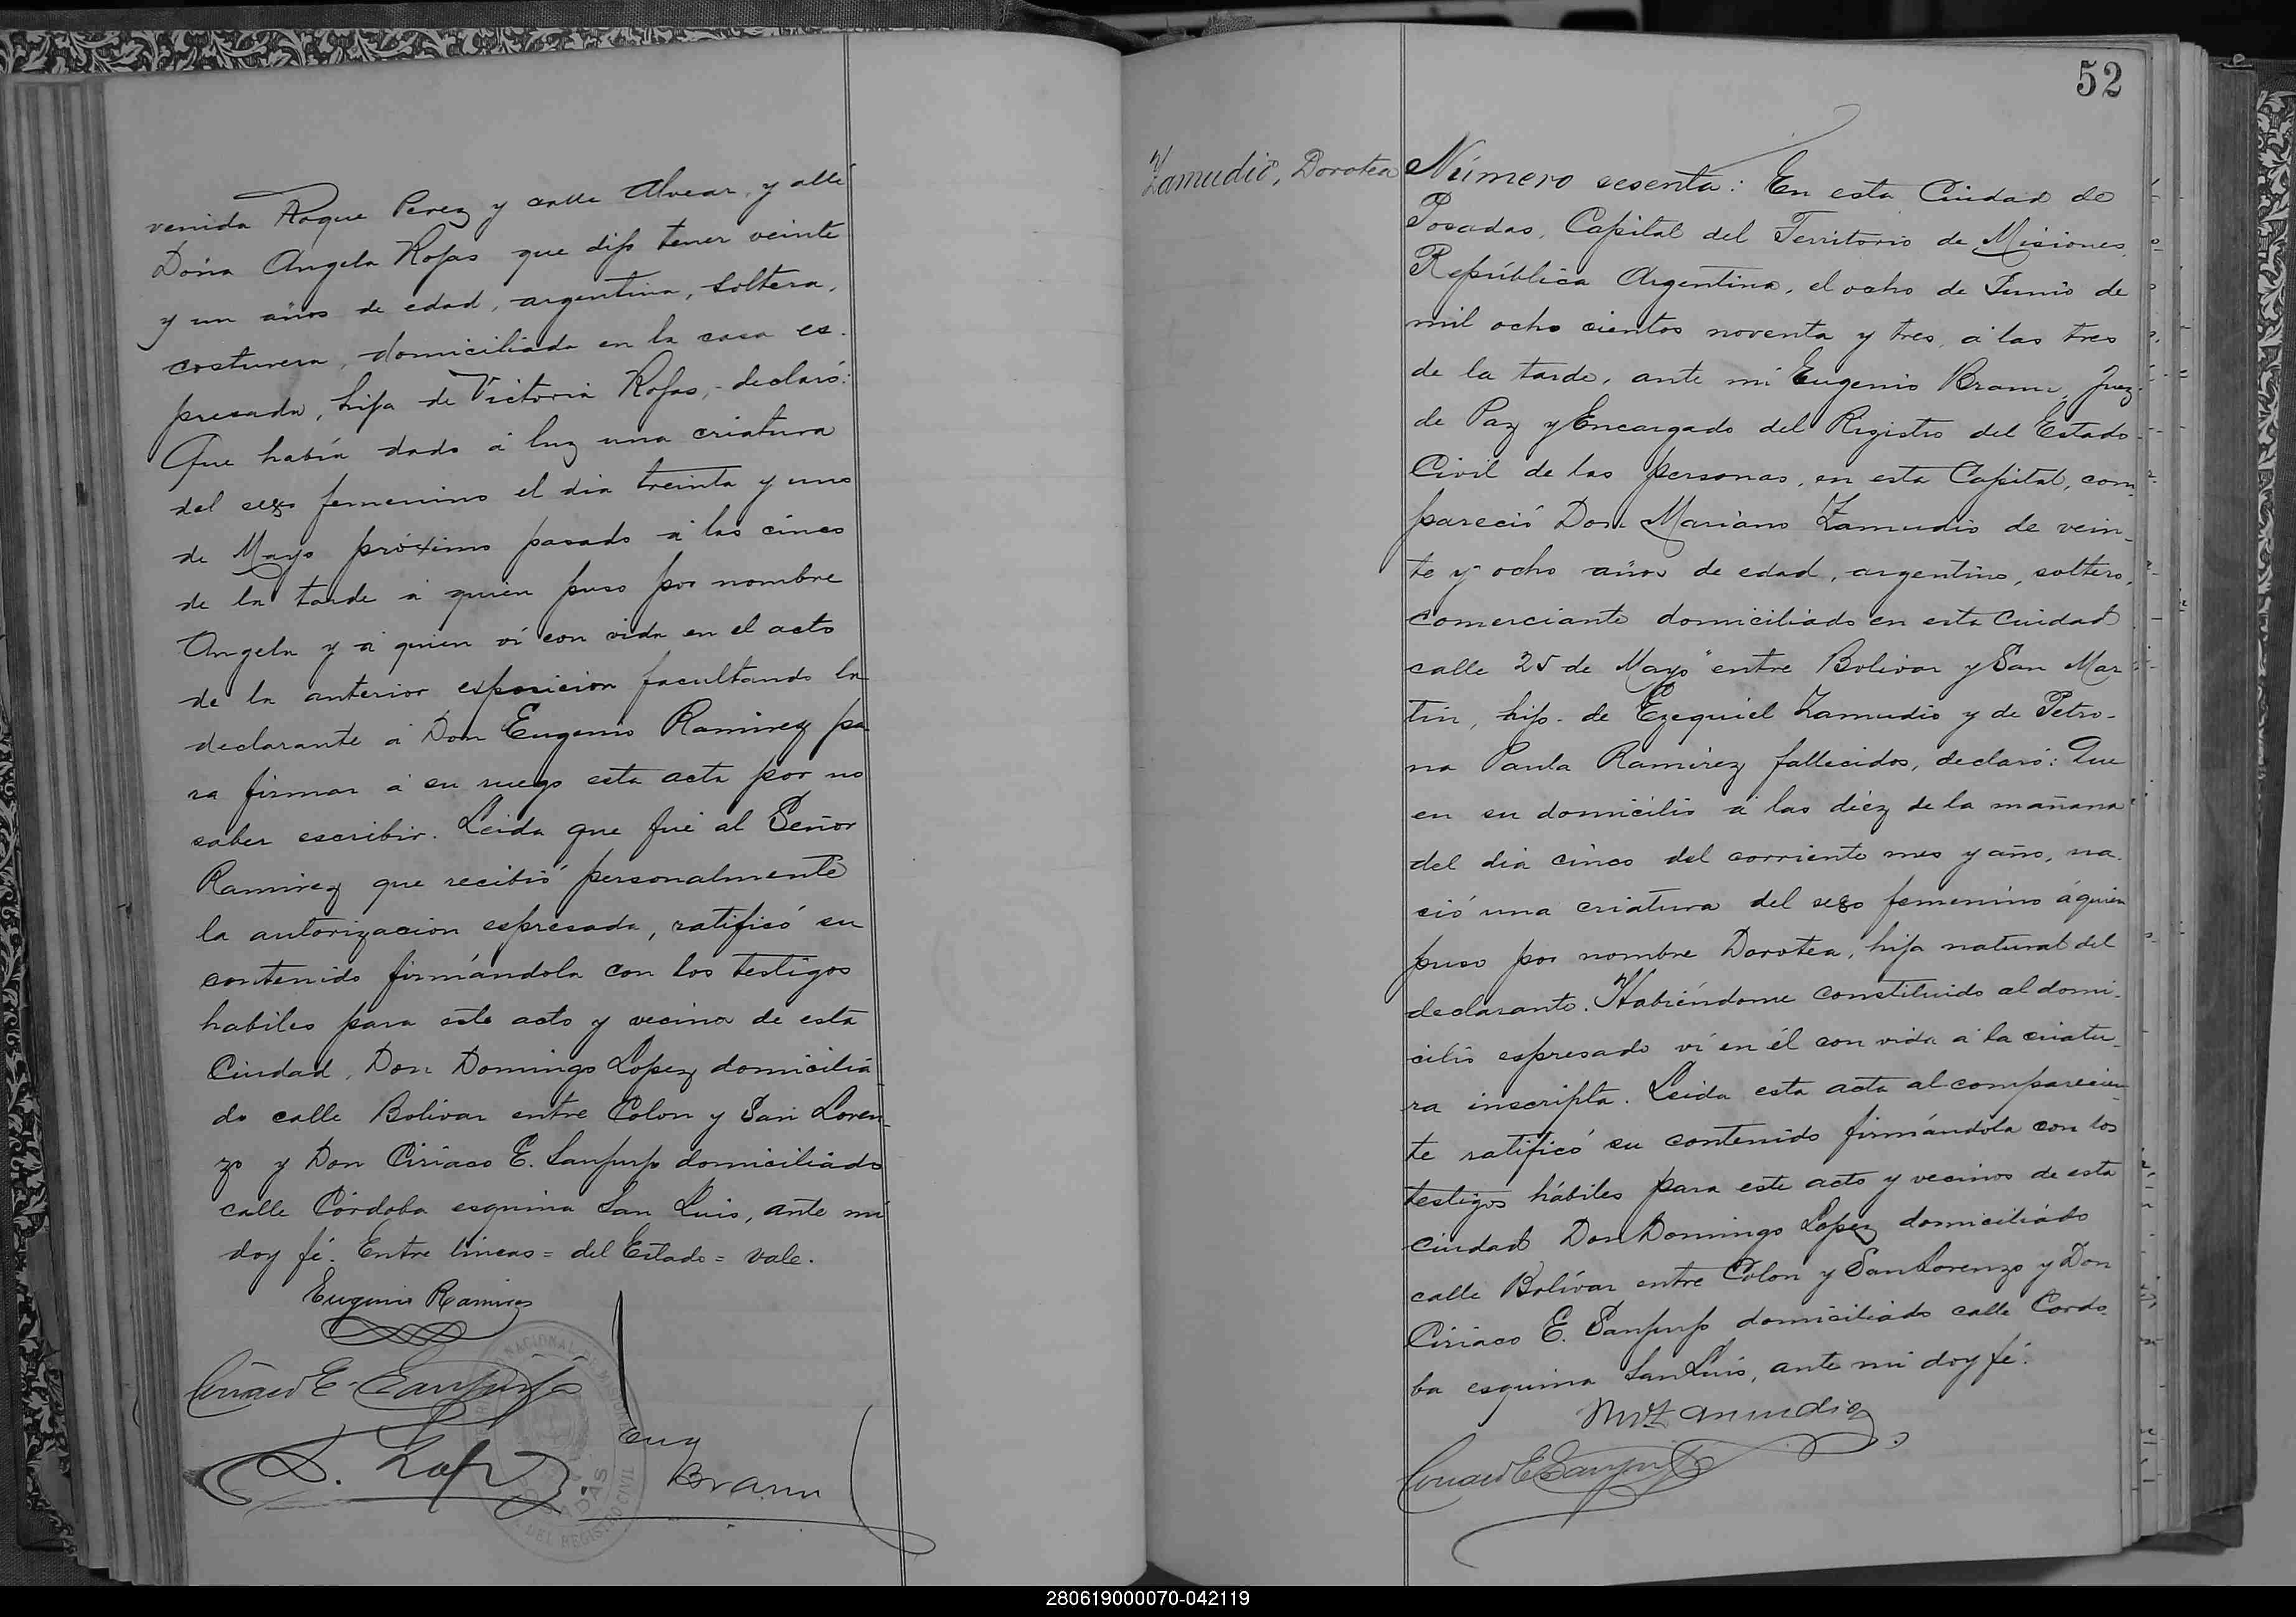 venida Roque Perez y calle Alvear, y allí
Doña Angela Rojas que dijo tener veinte
y un años de edad, argentina, soltera,
costurera, domiciliada en la casa es-
presada, hija de Victoria Rojas, declaró:
Que había dado á luz una criatura
del sexo femenino el dia treinta y uno
de Mayo próximo pasado á las cinco
de la tarde á quien puso por nombre
Angela y á quien ví con vida en el acto
de la anterior esposicion facultando la
declarante á Don Eugenio Ramirez pa
ra firmar á su ruego esta acta por no
saber escribir. Leida que fué al Señor
Ramirez que recibió personalmente
la autorizacion espresada, ratificó su
contenido firmándola con los testigos
habiles para este acto y vecinos de esta
Ciudad, Don Domingo Lopez domicilia-
do calle Bolivar entre Colon y San Loren-
zo y Don Ciriaco E. Sanjurjo domiciliado
calle Córdoba esquina San Luis, ante mi
doy fé. Entre lineas = del Estado = vale.
Eugenio Ramirez
Ciriaco E. Sanjurjo
D. Lopez
Eug Braun
POSADAS
DEL REGISTRO CIVIL
52
Zamudio, Dorotea
Número sesenta: En esta Ciudad de
Posadas, Capital del Territorio de Misiones,
República Argentina, el ocho de Junio de
mil ocho cientos noventa y tres, á las tres
de la tarde, ante mi Eugenio Braun, Juez
de Paz y Encargado del Registro del Estado
Civil de las personas, en esta Capital, com-
pareció Don Mariano Zamudio de vein-
te y ocho años de edad, argentino, soltero,
comerciante domiciliado en esta Ciudad
calle 25 de Mayo entre Bolivar y San Mar
tin, hijo de Ezequiel Zamudio y de Petro-
na Paula Ramirez fallecidos, declaró: Que
en su domicilio á las diez de la mañana
del dia cinco del corriente mes y año, na-
ció una criatura del sexo femenino á quien
puso por nombre Dorotea, hija natural del
declarante. Habiéndome constituido al domi-
cilio espresado ví en él con vida á la criatu-
ra inscripta. Leida esta acta al comparecien-
te ratificó su contenido firmándola con los
testigos hábiles para este acto y vecinos de esta
ciudad Don Domingo Lopez domiciliado
calle Bolívar entre Colon y San Lorenzo y Don
Ciriaco E. Sanjurjo domiciliado calle Cordo-
ba esquina San Luis, ante mi doy fé.
M Zamudio
Ciriaco E Sanjurjo
280619000070-042119